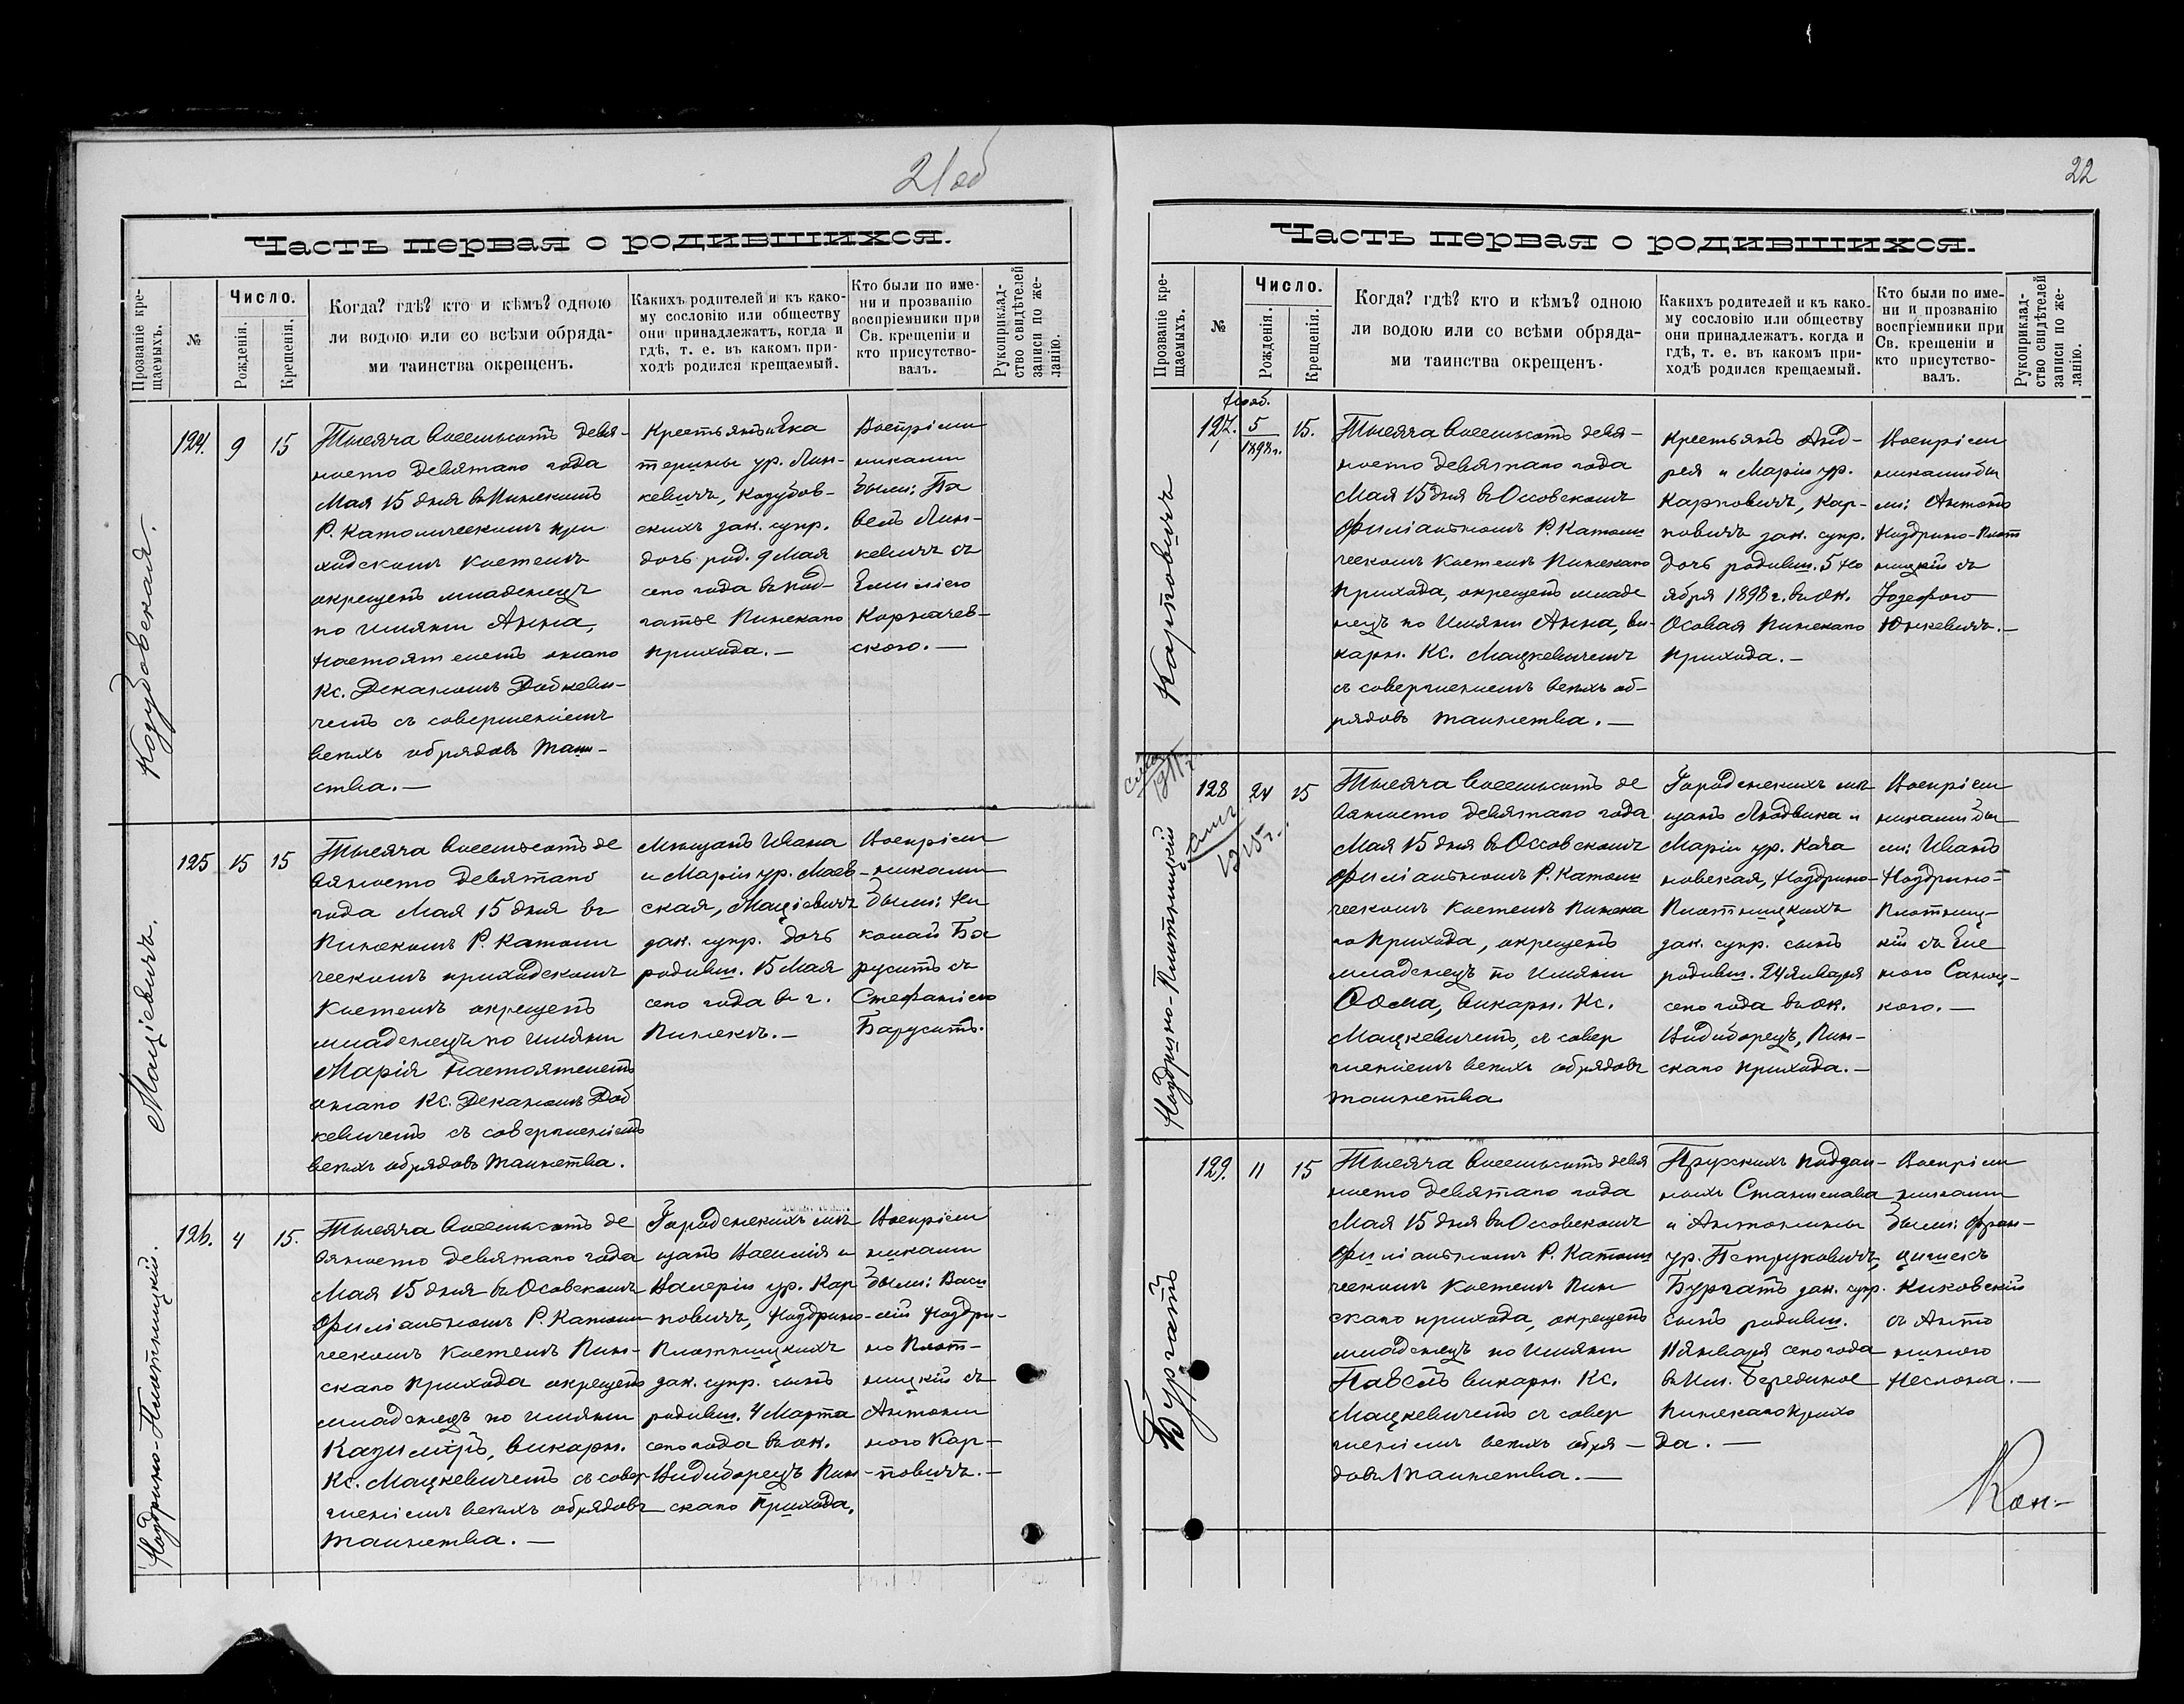 21об
Часть первая о родившихся.
Прозваніе кре-
щаемыхъ.
№
Число.
Рожденія.
Крещенія.
Когда? гдѣ? кто и кѣмъ? одною
ли водою или со всѣми обряда-
ми таинства окрещенъ.
Какихъ родителей и къ како-
му сословію или обществу
они принадлежатъ, когда и
гдѣ, т. е. въ какомъ при-
ходѣ родился крещаемый.
Кто были по име-
ни и прозванію
воспріемники при
Св. крещеніи и
кто присутство-
валъ.
Рукоприклад-
ство свидѣтелей
записи по же-
ланію.
Козубовская.
124.
9
15
Тысяча восемьсотъ девя-
носто девятаго года
Мая 15 дня въ Пинскомъ
Р. Католическомъ при
ходскомъ костелѣ
окрещенъ младенецъ
по имяни Анна,
Настоятелемъ онаго
Кс. Деканомъ Добкеви-
чемъ съ совершеніемъ
всѣхъ обрядовъ таин-
ства.—
Крестьянъ
терины ур. Лин-
кевичъ, Козубов-
скихъ зак. супр.
дочь род. 9 Мая
сего года въ
Пинскаго
прихода.—
Воспріем
никами
были: Па
велъ Лин-
кевичъ съ
Емиліею
Корначев-
скою.—
Маціевичъ.
125
15
15
Тысяча восемьсотъ де
вяносто девятаго
года Мая 15 дня въ
Пинскомъ Р. Католи
ческомъ приходскомъ
костелѣ окрещенъ
младенецъ по имяни
Марія Настоятелемъ
онаго Кс. Деканомъ Доб
кевичемъ съ совершеніемъ
всѣхъ обрядовъ таинства.
Мѣщанъ Ивана
и Маріи ур. Маев-
ская, Маціевичъ
зак. супр. дочь
родивш. 15 Мая
сего года въ г.
Пинскѣ.—
Воспріем
никами
были: Ни
колай Ба
русинъ съ
Стефаніею
Барусинъ.
Ноздрино-Плотницкій.
126.
4
15.
Тысяча восемьсотъ де
вяносто девятаго года
Мая 15 дня въ Осовскомъ
филіальномъ Р. Католи
ческомъ костелѣ Пин-
скаго прихода окрещенъ
младенецъ по имяни
Казимиръ, викарн.
Кс. Мацкевичемъ съ совер
шеніемъ всѣхъ обрядовъ
таинства.—
Городенскихъ мѣ
щанъ Василія и
Валеріи ур. Кар
повичъ, Ноздрино-
Плотницкихъ
зак. супр. сынъ
родивш. 4 Марта
сего года въ ок.
Видиборецъ Пин-
скаго прихода.
Воспріем
никами
были: Васи
лій Ноздри-
но Плот-
ницкій съ
Антони
ною Кар-
повичъ.—
22
Часть первая о родившихся.
Прозваніе кре-
щаемыхъ.
№
Число.
Рожденія.
Крещенія.
Когда? гдѣ? кто и кѣмъ? одною
ли водою или со всѣми обряда-
ми таинства окрещенъ.
Какихъ родителей и къ како-
му сословію или обществу
они принадлежатъ. когда и
гдѣ, т. е. въ какомъ при-
ходѣ родился крещаемый.
Кто были по име-
ни и прозванію
воспріемники при
Св. крещеніи и
кто присутство-
валъ.
Рукоприклад-
ство свидѣтелей
записи по же-
ланію.
Карповичъ
127.
Нояб.
5
1898 г.
15.
Тысяча восемьсотъ девя-
носто девятаго года
Мая 15 дня въ Оссовскомъ
филіальномъ Р. Католи
ческомъ костелѣ Пинскаго
прихода, окрещенъ младе
нецъ по имяни Анна, ви-
карн. Кс. Мацкевичемъ
съ совершеніемъ всѣхъ об-
рядовъ таинства.—
Крестьянъ Анд-
рея и Маріи ур.
Карповичъ, Кар-
повичъ зак. супр.
дочь родивш. 5 Но
ября 1898 г. въ ок.
Осовая Пинскаго
прихода.—
Воспріем
никами бы
ли: Антонъ
Ноздрино-Плот
ницкій съ
Іозефою
Юнкевичъ.—
Ноздрино-Плотницкій
1915 г.
128
24
15
Тысяча восемьсотъ де
вяносто девятаго года
Мая 15 дня въ Оссовскомъ
филіальномъ Р. Католи
ческомъ костелѣ Пинска
го прихода, окрещенъ
младенецъ по имяни
Ѳома, викарн. Кс.
Мацкевичемъ, съ совер
шеніемъ всѣхъ обрядовъ
таинства.
Городенскихъ мѣ
щанъ Людвика и
Маріи ур. Кача
новская, Ноздрино-
Плотницкихъ
зак. супр. сынъ
родивш. 24 Января
сего года въ ок.
Видиборецъ, Пин-
скаго прихода.—
Воспріем
никами бы
ли: Иванъ
Ноздрино-
Плотниц-
кій съ Еле
ною Саноц-
кою.—
Бургатъ
129.
11
15
Тысяча восемьсотъ девя
носто девятаго года
Мая 15 дня въ Оссовскомъ
филіальномъ Р. Католи
ческомъ костелѣ Пин
скаго прихода, окрещенъ
младенецъ по имяни
Павелъ викарн. Кс.
Мацкевичемъ съ совер
шеніемъ всѣхъ обря-
довъ таинства.—
Прусскихъ поддан-
ныхъ Станислава
и Антонины
ур. Петруковичъ,
Бургатъ зак. супр.
сынъ родивш.
11 Января сего года
въ им. Берединое
Пинскаго прихо
да.—
Воспріем
никами
были: Фран-
цишекъ
Киковскій
съ Анто
ниною
Неслона.—
Кон-